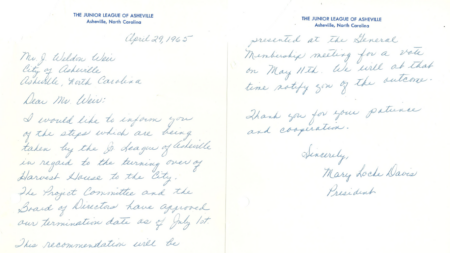 THE JUNIOR LEAGUE OF ASHEVILLE
Asheville, North Carolina
April 29, 1965
Mr. J. Weldon Weir
City of Asheville
Asheville, North Carolina
Dear Mr. Weir:
I would like to inform you
of the steps which are being
taken by the Jr. League of Asheville
in regard to the turning over of
Harvest House to the City.
The Project Committee and the
Board of Directors have approved
our termination date as of July 1st
This recommendation will be
THE JUNIOR LEAGUE OF ASHEVILLE
Asheville, North Carolina
presented at the General
Membership meeting for a vote
on May 11th. We will at that
time notify you of the outcome.
Thank you for your patience
and cooperation.
Sincerely,
Mary Locke Davis
President